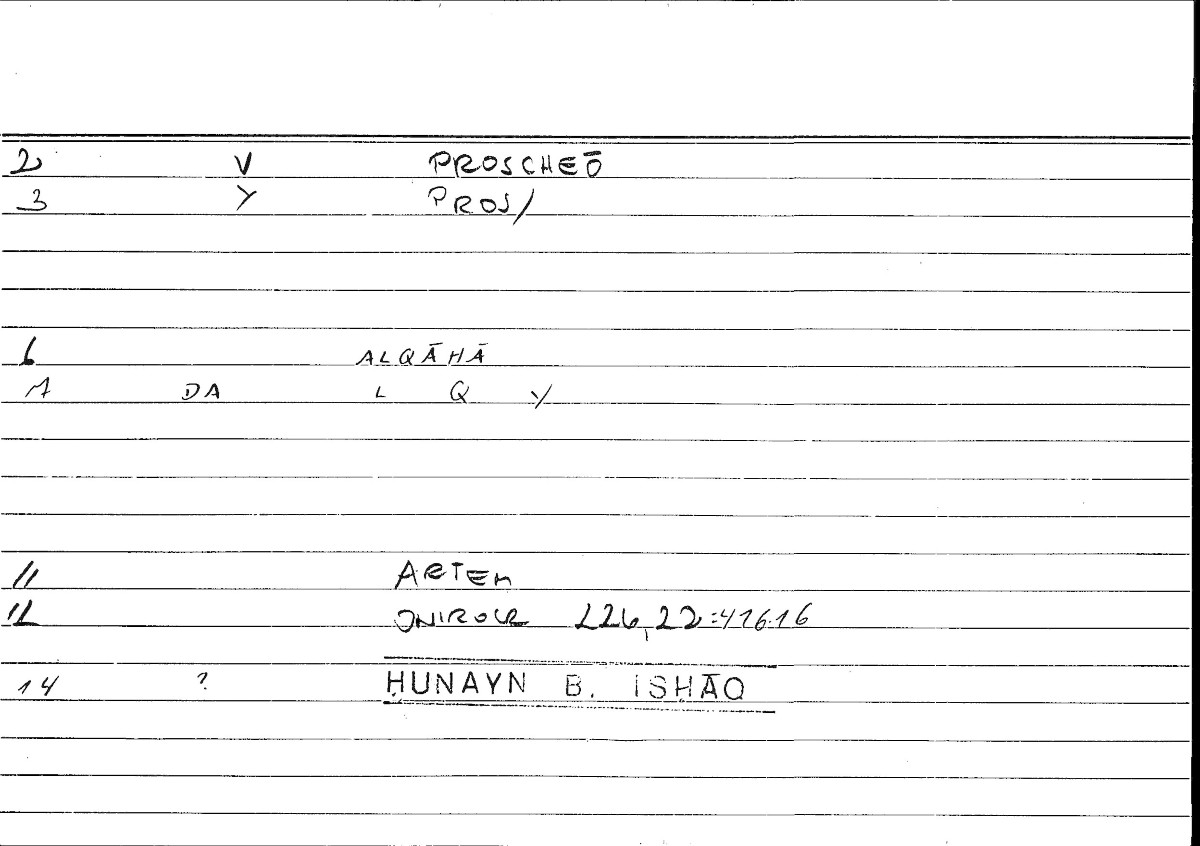 2 V PROSCHEŌ
3 Y PROS/
6 ALQĀHĀ
1 DA L Q Y
11 ARTEM
12 ONIROCR 226,22=416.16
14 ? ḤUNAYN B. ISḤĀQ